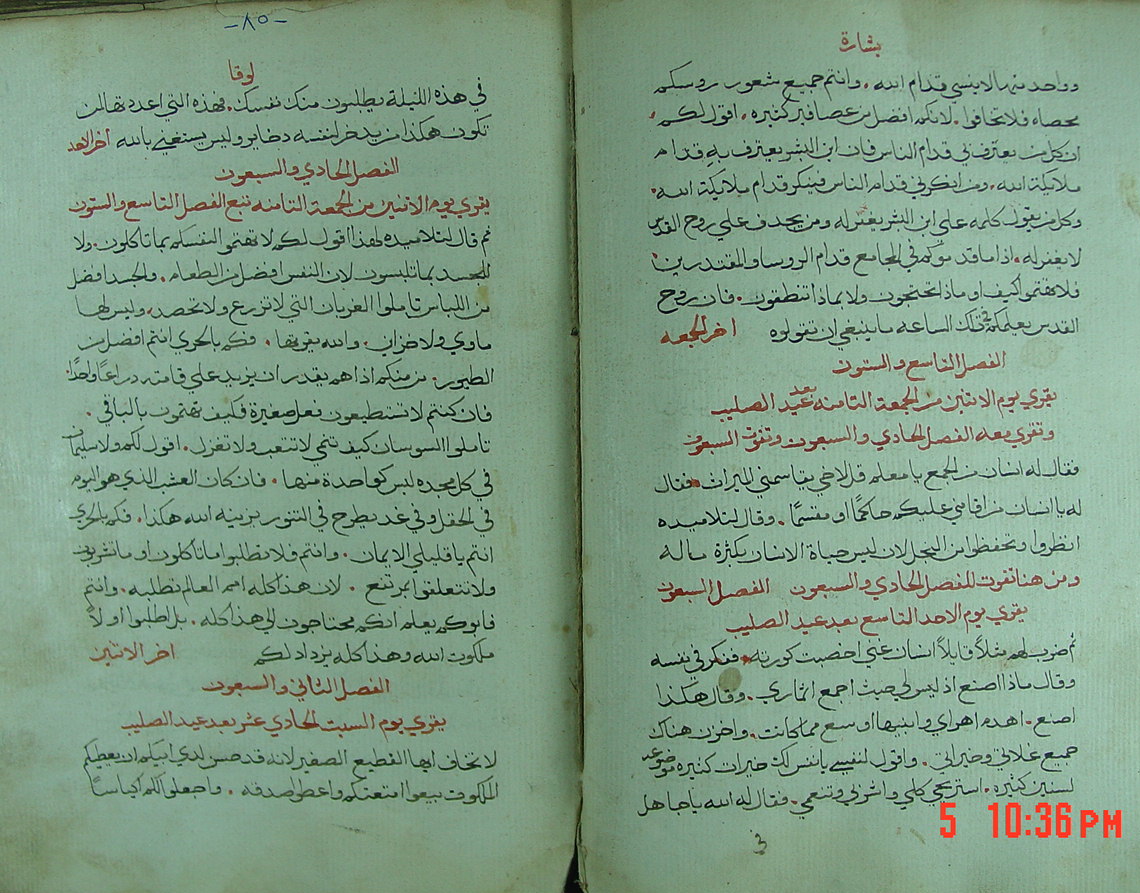 بشارة
وواحد منها لا ينسي قدام الله. وانتم جميع شعور روسكم
محصاه فلا تخافوا. لانكم افضل من عصافير كثيره. اقول لكم.
ان كل من يعترف بي قدام الناس فان ابن البشر يعترف به قدام
ملايكة الله. ومن انكرني قدام الناس فينكر قدام ملايكة الله.
وكل من يقول كلمه علي ابن البشر يغفر له ومن يجدف علي روح القدس
لا يغفر له. اذا ما قدموكم في المجامع قدام الروسا والمقتدرين
فلا تهتموا كيف او ماذا تحتجون ولا بماذا تنطقون. فان روح
القدس يعلمكم في تلك الساعه ما ينبغي ان تقولوه اخر الجمعه
الفصل التاسع والستون
يقري يوم الاثنين من الجمعة الثامنه بعد عيد الصليب
وتقري معه الفصل الحادي والسبعون وتفوت السبعون
فقال له انسان من الجمع يا معلم قل لاخي يقاسمني الميراث. فقال
له يا انسان من اقامني عليكم حاكمًا او مقسمًا. وقال لتلاميذه
انظروا وتحفظوا من البخل لان ليس حياة الانسان بكثرة ماله
ومن هنا تفوت للفصل الحادي والسبعون الفصل السبعون
يقري يوم الاحد التاسع بعد عيد الصليب
ثم ضرب لهم مثلاً قايلاً انسان غني اخصبت كورته. ففكر في نفسه
وقال ماذا اصنع اذ ليس لي حيث اجمع اثماري. وقال هكذا
اصنع. اهدم اهراي وابنيها اوسع مما كانت. واخزن هناك
جميع غلاتي وخيراتي. واقول لنفسي يا نفس لك خيرات كثيره موضوعه
لسنين كثيره. استريحي كلي واشربي وتنعمي. فقال له الله يا جاهل
5 10:36PM
-٨٥-
لوقا
في هذه الليلة يطلبون منك نفسك. فهذه التي اعددتها لمن
تكون هكذا من يدخر لنفسه دخاير وليس يستغني بالله اخر الاحد
الفصل الحادي والسبعون
يقري يوم الاثنين من الجمعة الثامنه تبع الفصل التاسع والستون
ثم قال لتلاميذه لهذا اقول لكم لا تهتموا لنفسكم بما تاكلون. ولا
للجسد بما تلبسون لان النفس افضل من الطعام. والجسد افضل
من اللباس تاملوا الغربان التي لا تزرع ولا تحصد. وليس لها
ماوي ولا خزاين. والله يقوتها. فكم بالحري انتم افضل من
الطيور. من منكم اذا هم يقدر ان يزيد علي قامته دراعًا واحدًا.
فان كنتم لا تستطيعون فعل صغيرة فكيف تهتمون بالباقي.
تاملوا السوسان كيف تنمي لا تتعب ولا تغزل. اقول لكم ولا سليمان
في كل مجده لبس كواحدة منها. فان كان العشب الذي هو اليوم
في الحقل وفي غد يطرح في التنور يزينه الله هكذا. فكم بالحري
انتم يا قليلي الايمان. وانتم فلا تطلبوا ما تاكلون او ما تشربون
ولا تتعلقوا بمرتفع. لان هذا كله امم العالم تطلبه. وانتم
فابوكم يعلم انكم محتاجون لي هذا كله. بل اطلبوا اولاً
ملكوت الله وهذا كله يزداد لكم اخر الاثنين
الفصل الثاني والسبعون
يقري يوم السبت الحادي عشر بعد عيد الصليب
لا تخاف ايها القطيع الصغير لانه قد حسن لدي ابيكم ان يعطيكم
الملكوت بيعوا امتعتكم واعطوا صدقه. واجعلوا لكم اكياسًا